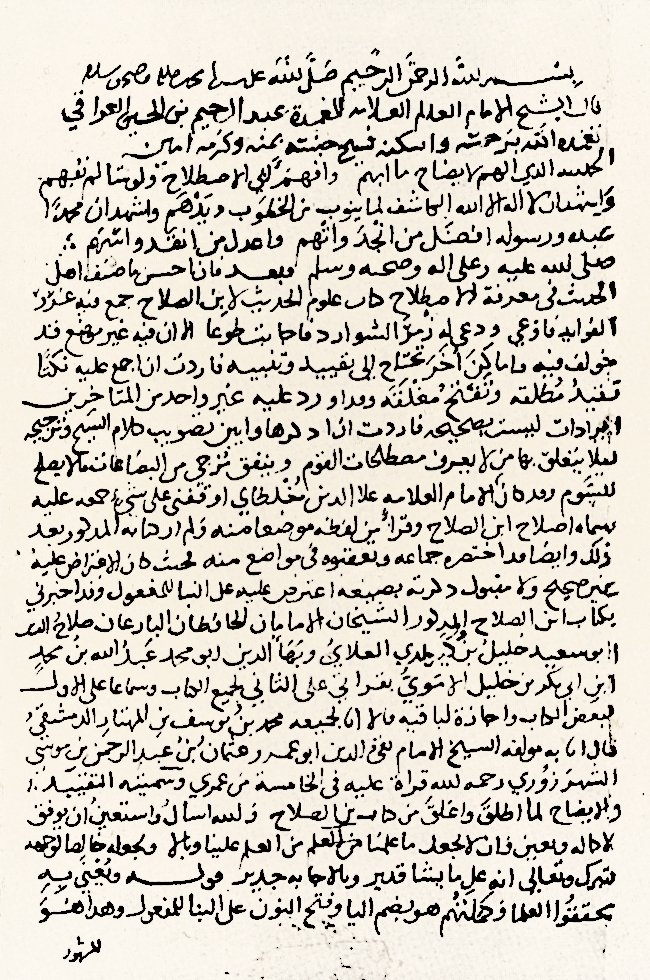 بسم الله الرحمن الرحيم صلى الله على سيدنا محمد وصحبه وسلم
قال الشيخ الامام العالم العلامه العمدة عبد الرحيم بن الحسين العراقي
تغمده الله برحمته واسكنه فسيح جنته بمنه وكرمه امين
الحمد لله الذي الهم لايضاح ما ابهم وافهم للاصطلاح ولو شا لم نفهم
واشهد ان لا اله الا الله الكاشف لما ينوب من الخطوب ويدهم واشهد ان محمدا
عبده ورسوله افضل من انجد واتهم واعدل من انقد واسهم
صلى الله عليه وعلى اله وصحبه وسلم وبعد فان احسن ما صنف اهل
الحديث في معرفة الاصطلاح كتاب علوم الحديث لابن الصلاح جمع فيه غرر
الفوايد فاوعي ودعي له زمر الشوارد فاجابت طوعا الا ان فيه غير موضع قد
خولف فيه واماكن اخر تحتاج الى تقييد وتنبيه فاردت ان اجمع عليه نكتا
تقيد مطلقه وتفتح مغلقه وقد اورد عليه غير واحد من المتاخرين
ايرادات ليست بصحيحه فاردت ان اذكرها وابين تصويب كلام الشيخ وترجيحه
ليلا يتعلق بها من لا يعرف مصطلحات القوم وينفق مزجي من البضاعات ما لا يصلح
للسوم وقد كان الامام العلامه علا الدين مغلطاي اوقفني على شي جمعه عليه
سماه اصلاح ابن الصلاح وقرا من لفظه موضعا منه ولم ار كتابه المذكور بعد
ذلك وايضا قد اختصره جماعه وتعقبوه في مواضع منه فحيث كان الاعتراض عليه
غير صحيح ولا مقبول ذكرته بصيغه اعترض عليه على البنا للمفعول وقد اخبرني
بكتاب ابن الصلاح المذكور الشيخان الامامان الحافظان البارعان صلاح الدين
ابو سعيد خليل بن كيكلدي العلائي وبهاء الدين ابو محمد عبد الله بن محمد
ابن ابي بكر بن خليل الاموي بقراتي على الثاني لجميع الكتاب وسماعا على الاول
لبعض الكتاب واجازة لباقيه قالا انا بجميعه محمد بن يوسف بن المهتار الدمشقي
قال انا به مولفه الشيخ الامام تقي الدين ابو عمرو عثمان بن عبد الرحمن بن موسى
الشهرزوري رحمه الله قراة عليه في الخامسة من عمري وسميته التقييد
والايضاح لما اطلق واغلق من كتاب بن الصلاح والله اسال واستعين ان يوفق
لاكماله ويعين وان لا يجعل ما علمنا من العلم علينا وبالا ويجعله خالصا لوجهه
تبرك وتعالى انه على ما يشا قدير وبالاجابه جدير قوله ويعني به
محققوا العلما وكملتهم هو بضم اليا وفتح النون على البنا للمفعول وهذا هو
المشهور